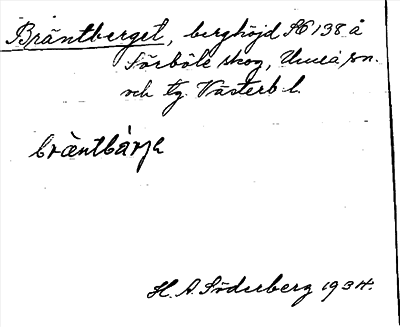 Bräntberget, berghöjd AE 138 å
Sörböle skog, Umeå sn.
och tg. Västerb. l.
bræ̀ntbárjə
H. A. Söderberg 1934.